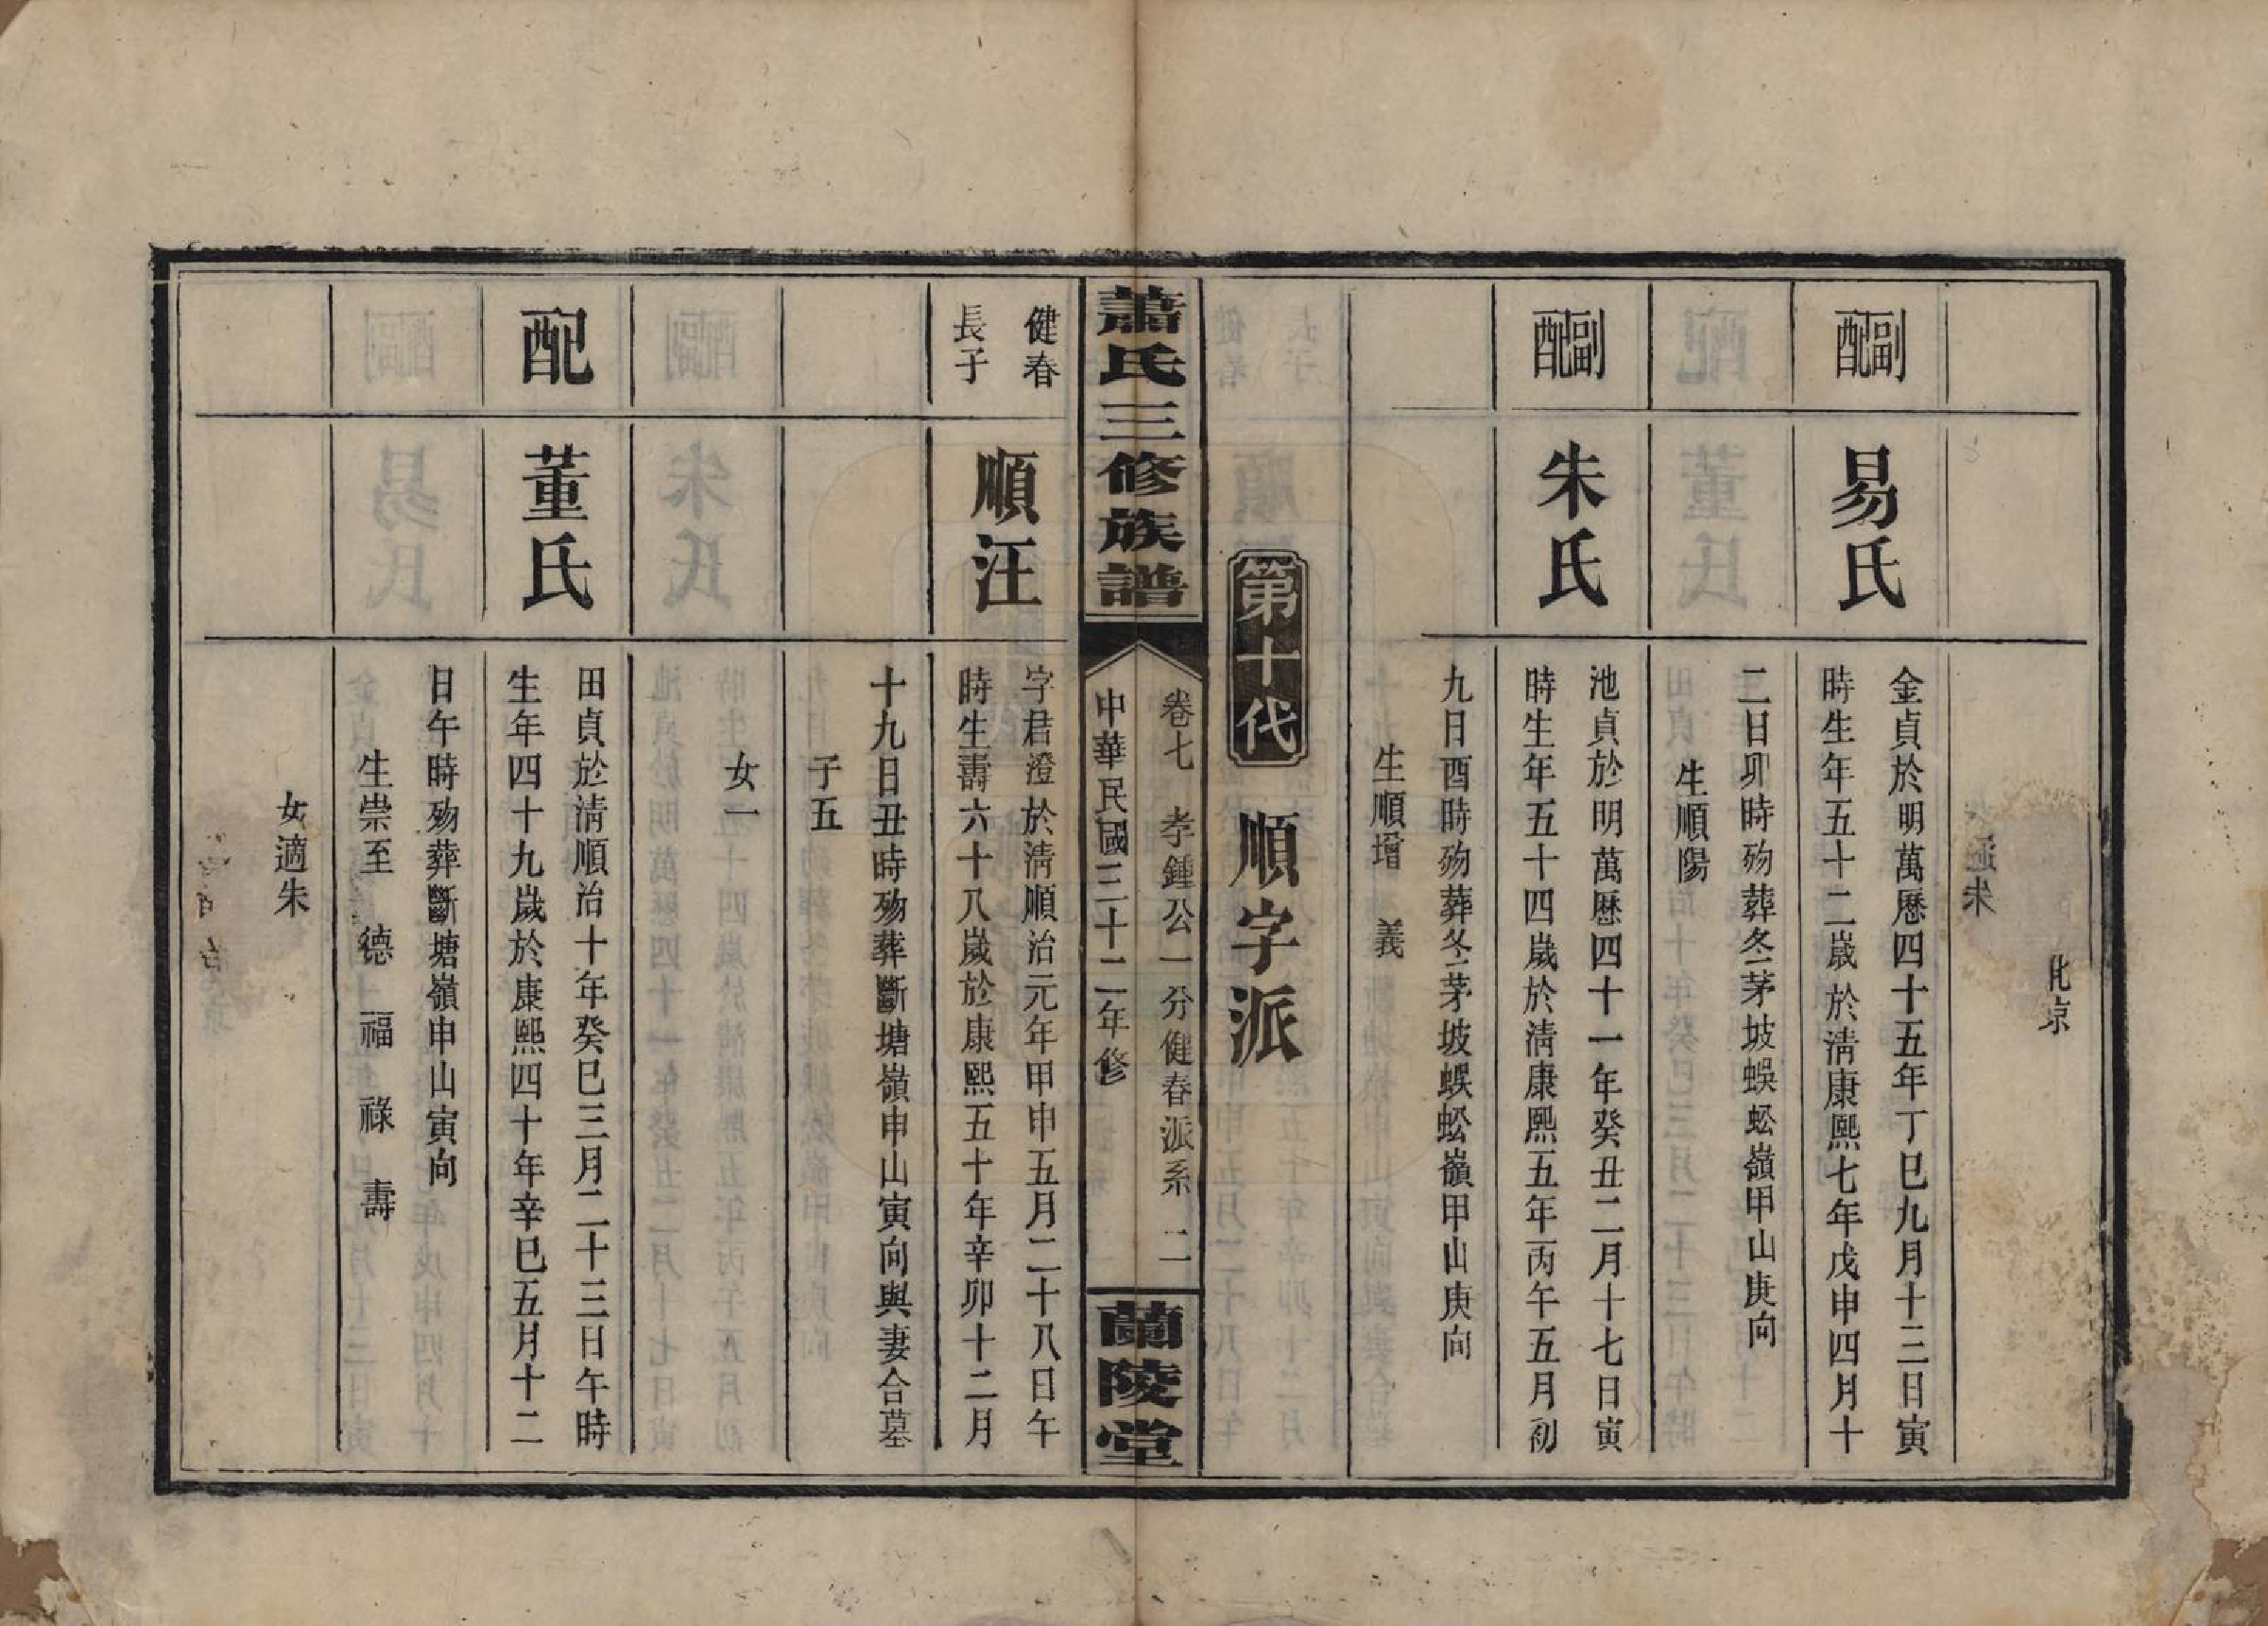 北京
適朱
副配
易氏
金貞於明萬曆四十五年丁巳九月十三日寅
時生年五十二歲於淸康熙七年戊申四月十
二日卯時歿葬冬茅坡蜈蚣嶺甲山庚向
生順陽
副配
朱氏
池貞於明萬歷四十一年癸丑二月十七日寅
時生年五十四歲於淸康熙五年丙午五月初
九日酉時歿葬冬茅坡蜈蚣嶺甲山庚向
生順增 義
第十代 順字派
蕭氏三修族譜
卷七 孝鍾公一分健春派系 二
中華民國三十二年修
蘭陵堂
健春
長子
順汪
字君澄於淸順治元年甲申五月二十八日午
時生壽六十八歲於康熙五十年辛卯十二月
十九日丑時歿葬斷塘嶺申山寅向與妻合墓
子五
女一
配
董氏
田貞於淸順治十年癸巳三月二十三日午時
生年四十九歲於康熙四十年辛巳五月十二
日午時歿葬斷塘嶺申山寅向
生崇至 德 福 祿 壽
女適朱